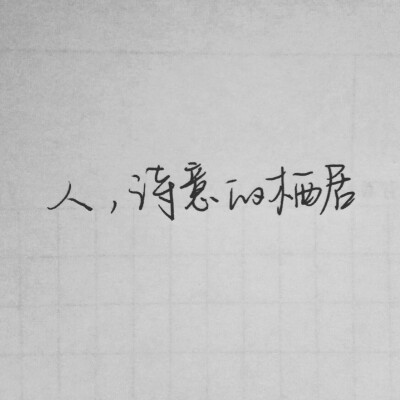 人，诗意的栖居